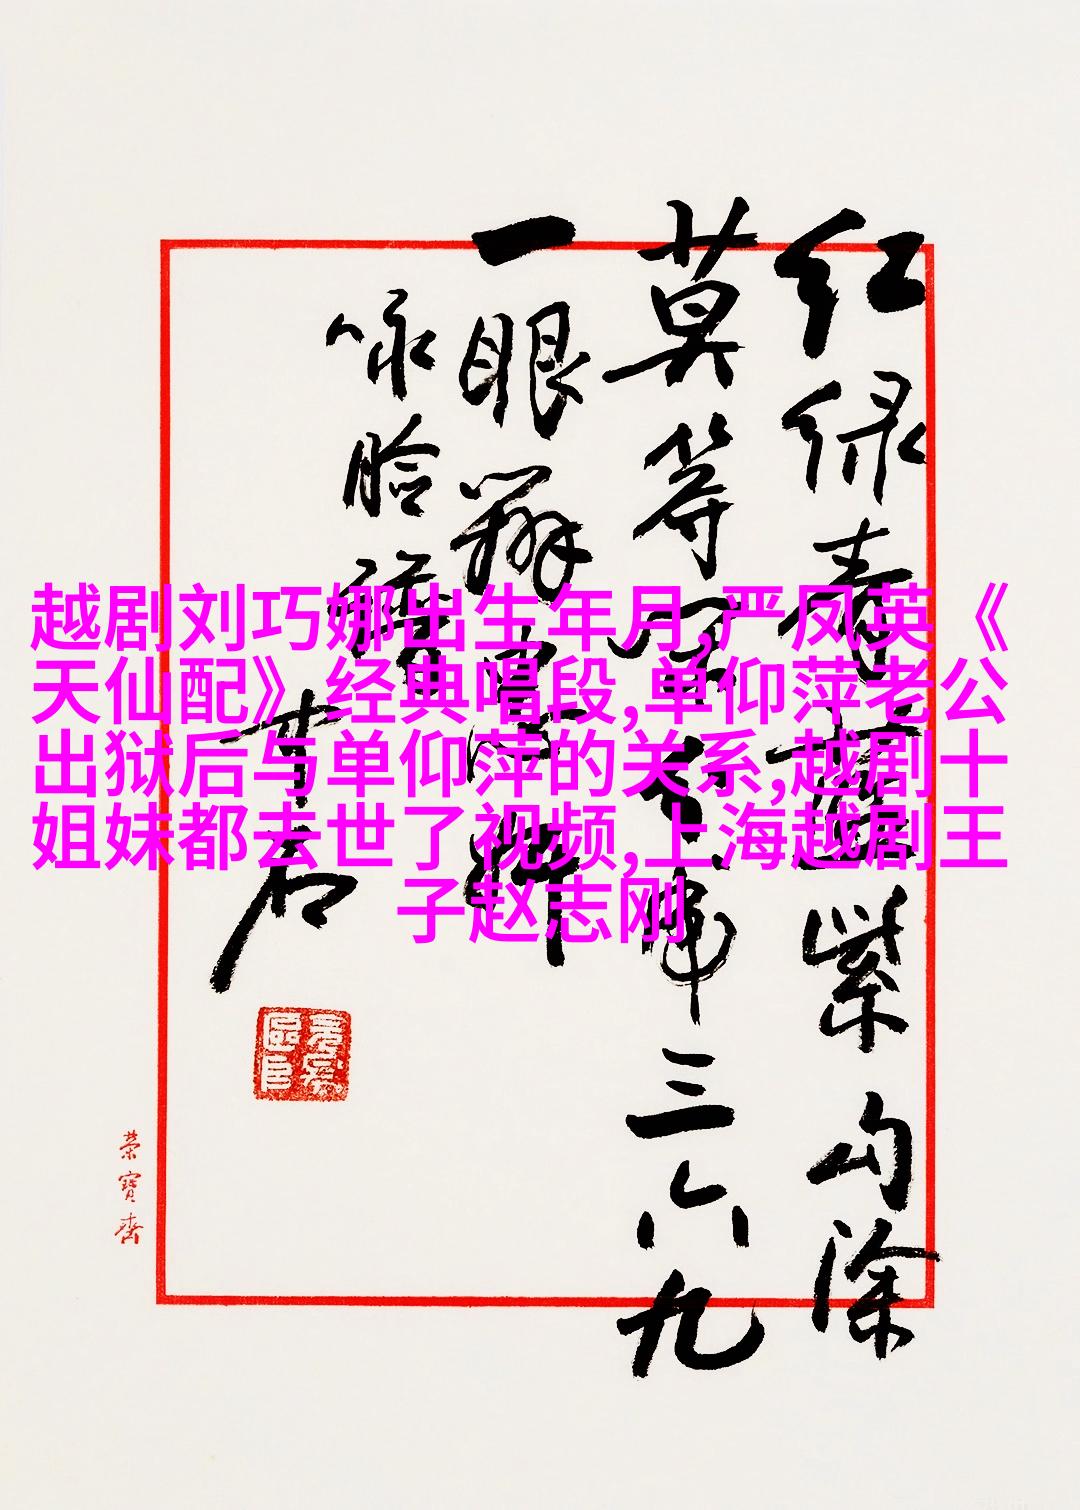 越剧刘巧娜出生年月,严凤英《
天仙配》经典唱段,单仰萍老公
出狱后与单仰萍的关系,越剧十
姐妹都去世了视频,上海越剧王
子赵志刚
红绿青蓝紫勾除
莫等闲 三六九
一眼辨
咏脸谱
荣寶齋